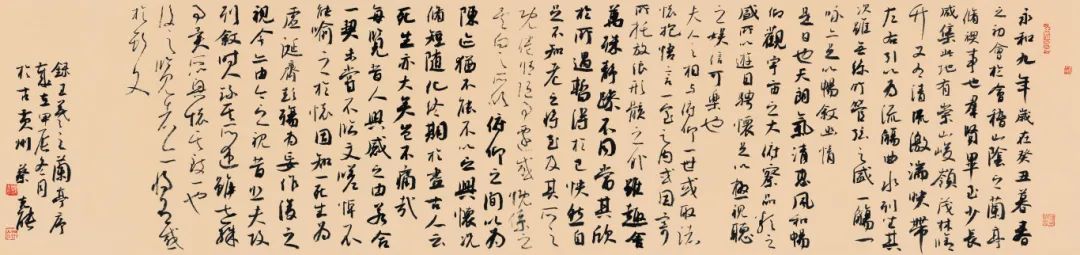 永和九年歲在癸丑暮春
之初會於會稽山陰之蘭亭
脩禊事也群賢畢至少長
咸集此地有崇山峻嶺茂林脩
竹又有清流激湍映帶
左右引以為流觴曲水列坐其
次雖無絲竹管弦之盛一觴一
詠亦足以暢敘幽情
是日也天朗氣清惠風和暢
仰觀宇宙之大俯察品類之
盛所以遊目騁懷足以極視聽
之娛信可樂也
夫人之相與俯仰一世或取諸
懷抱悟言一室之內或因寄
所托放浪形骸之外雖趣舍
萬殊靜躁不同當其欣
於所遇暫得於己快然自
足不知老之將至及其所之
既倦情隨事遷感慨係之
矣向之所欣俯仰之間以為
陳迹猶不能不以之興懷況
脩短隨化終期於盡古人云
死生亦大矣豈不痛哉
每覽昔人興感之由若合
一契未嘗不臨文嗟悼不
能喻之於懷固知一死生為
虛誕齊彭殤為妄作後之
視今亦由今之視昔悲夫故
列敘時人錄其所述雖世殊
事異所以興懷其致一也
後之覽者亦將有感
於斯文
錄王羲之蘭亭序
歲在甲辰冬月
於古黃州蔡